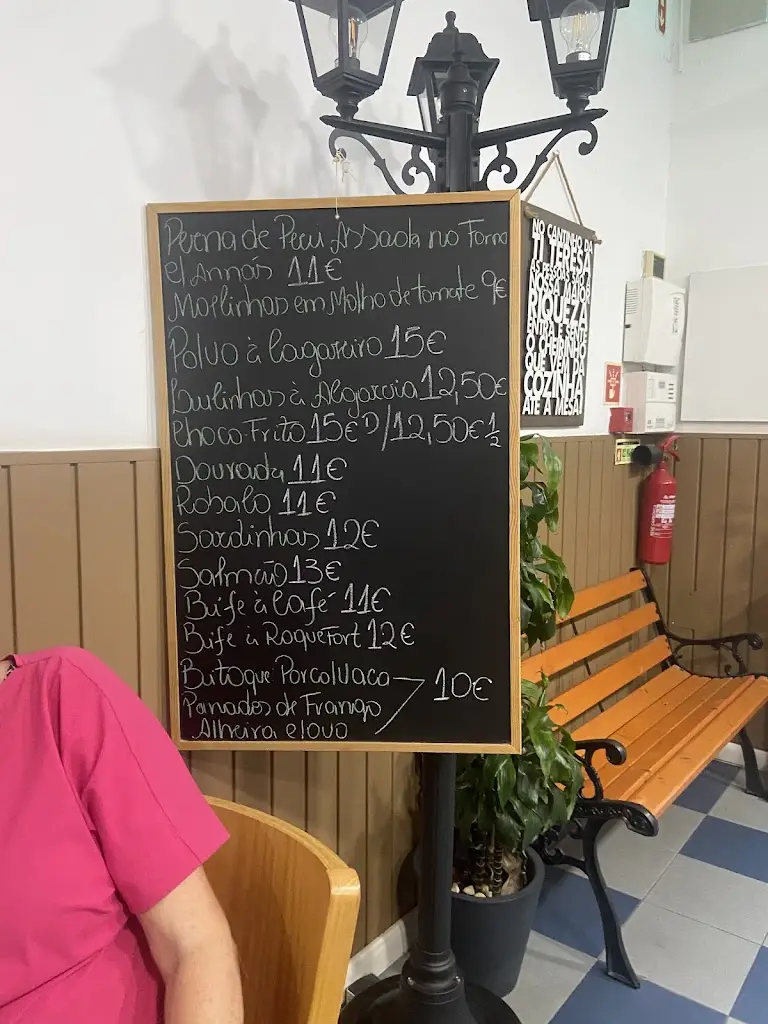 Perna de Peru Assada no Forno
c/ Annás 11€
Moelinhas em Molho de tomate 9€
Polvo à lagareiro 15€
Burlinhas à Algarvia 12,50€
Choco Frito 15€ D/12,50€ 1/2
Dourada 11€
Robalo 11€
Sardinhas 12€
Salmão 13€
Bife à Café 11€
Bife à Roquefort 12€
Bitoque Porco/Vaca
Panados de Frango 10€
Alheira c/ovo
NO CANTINHO DA
TI TERESA
AS PESSOAS SÃO A
NOSSA MAIOR
RIQUEZA
ENTRA E SENTE
O CHEIRINHO
QUE VEM DA
COZINHA
ATÉ A MESA!